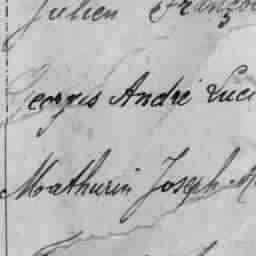 Julien Franço
Georges André Luci
Mathurin Joseph M